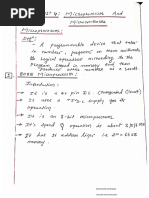 Unit 4: Microprocessor And
Microcontroller
Microprocessor:
Defn:
- A programmable device that takes
in numbers, performs on them arithmetic
& logical operations according to the
Program stored in memory and then
Produces other numbers as a result
8085 Microprocessor:
Introduction:
- It is a 40 pin I.C (Integrated Circuit)
- It uses a +5V D.C. supply for its
operation.
- Its speed of operation is about 3
- It has 16 address lines i.e. 2^16 = 64KB
memory.